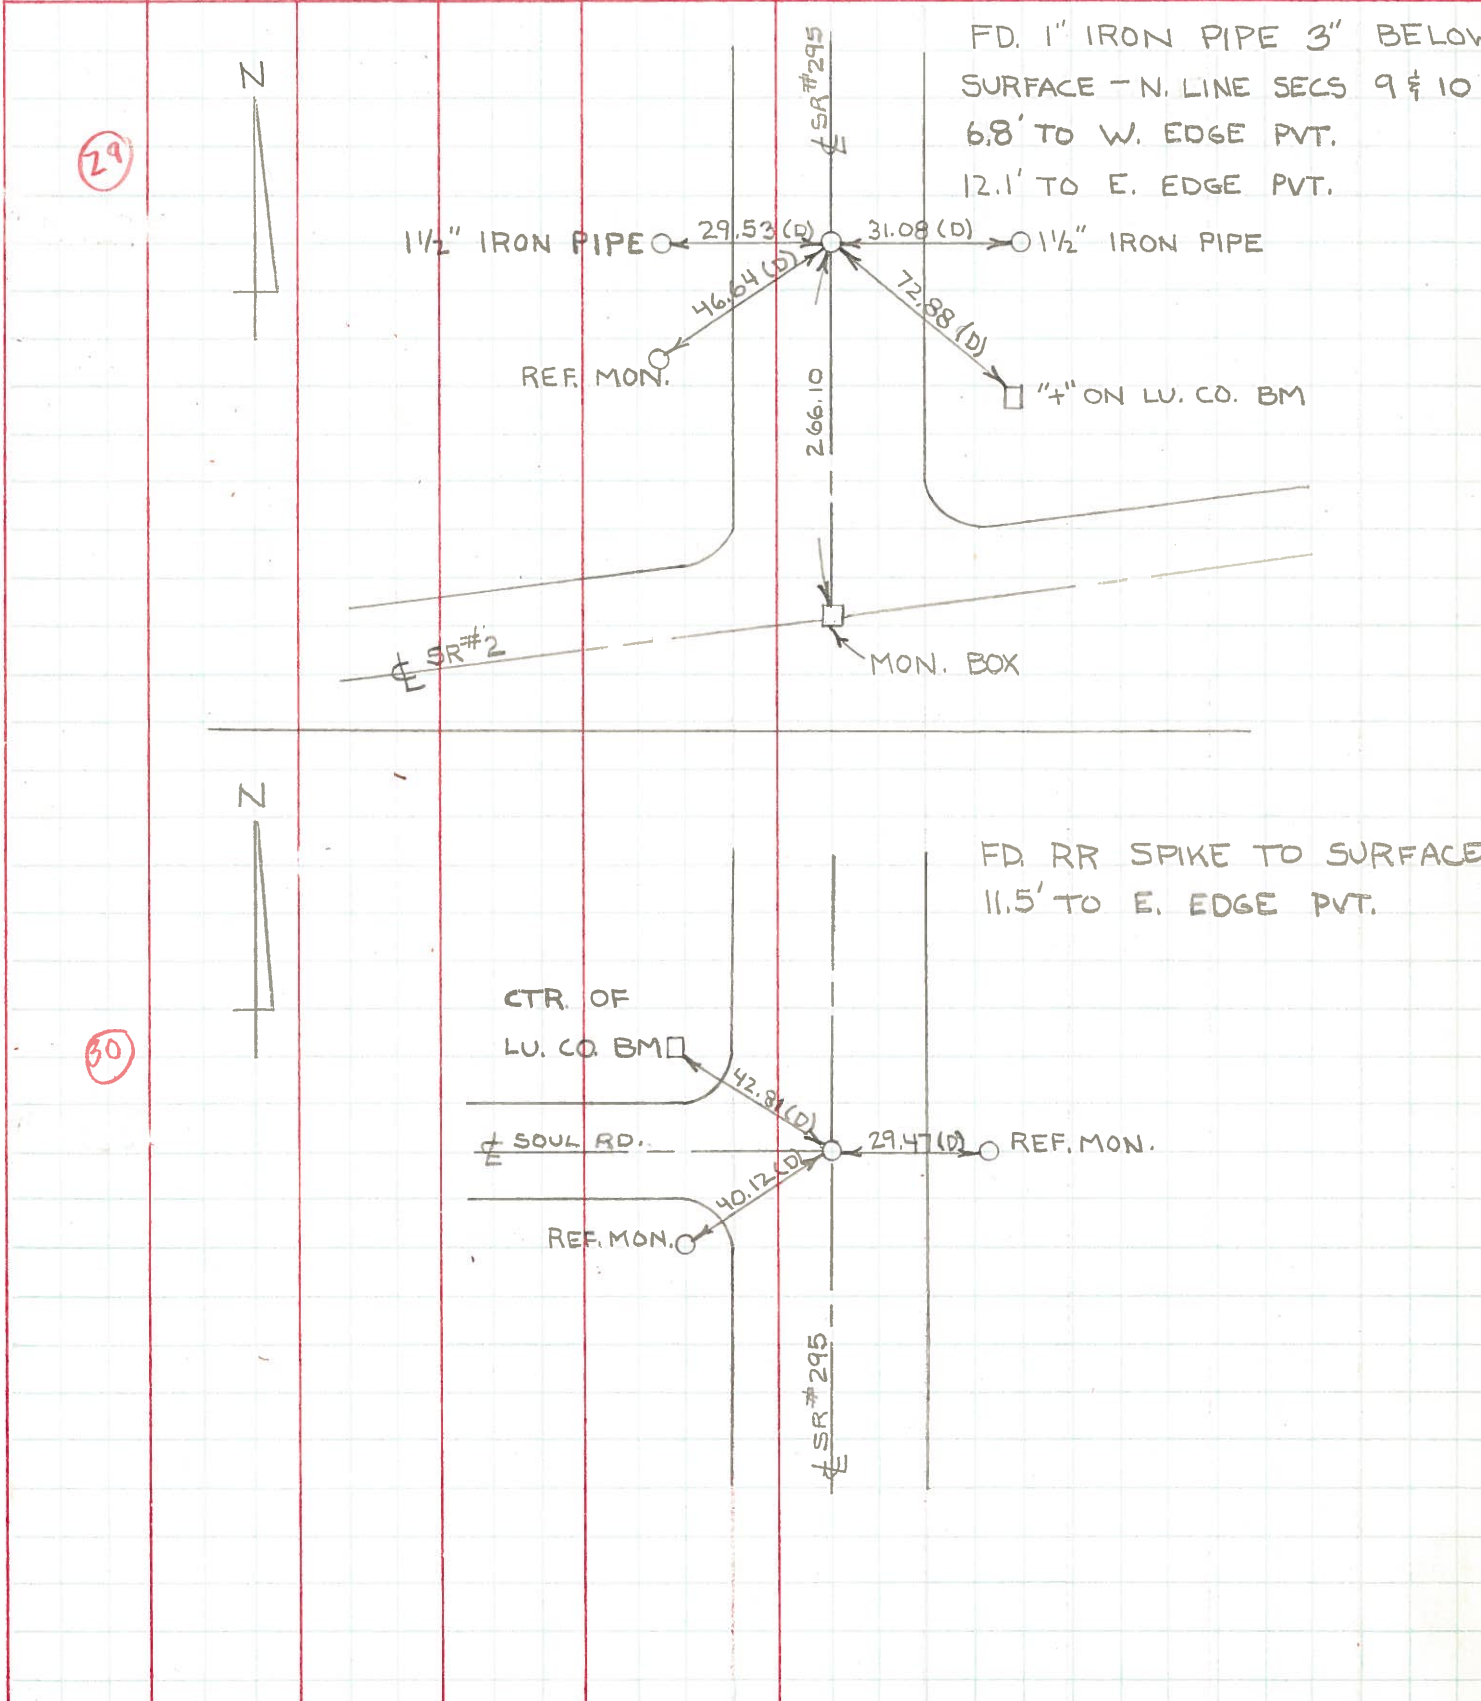 FD. 1" IRON PIPE 3" BELOW
SURFACE - N. LINE SECS 9 & 10
6.8' TO W. EDGE PVT.
12.1' TO E. EDGE PVT.
N
29
℄ SR #295
1 1/2" IRON PIPE
29.53 (D)
31.08 (D)
1 1/2" IRON PIPE
46.64 (D)
72.88 (D)
REF. MON.
"+" ON LU. CO. BM
266.10
℄ SR #2
MON. BOX
N
FD. RR SPIKE TO SURFACE
11.5' TO E. EDGE PVT.
30
CTR. OF
LU. CO. BM
42.81 (D)
℄ SOUL RD.
29.47 (D)
REF. MON.
40.12 (D)
REF. MON.
℄ SR #295